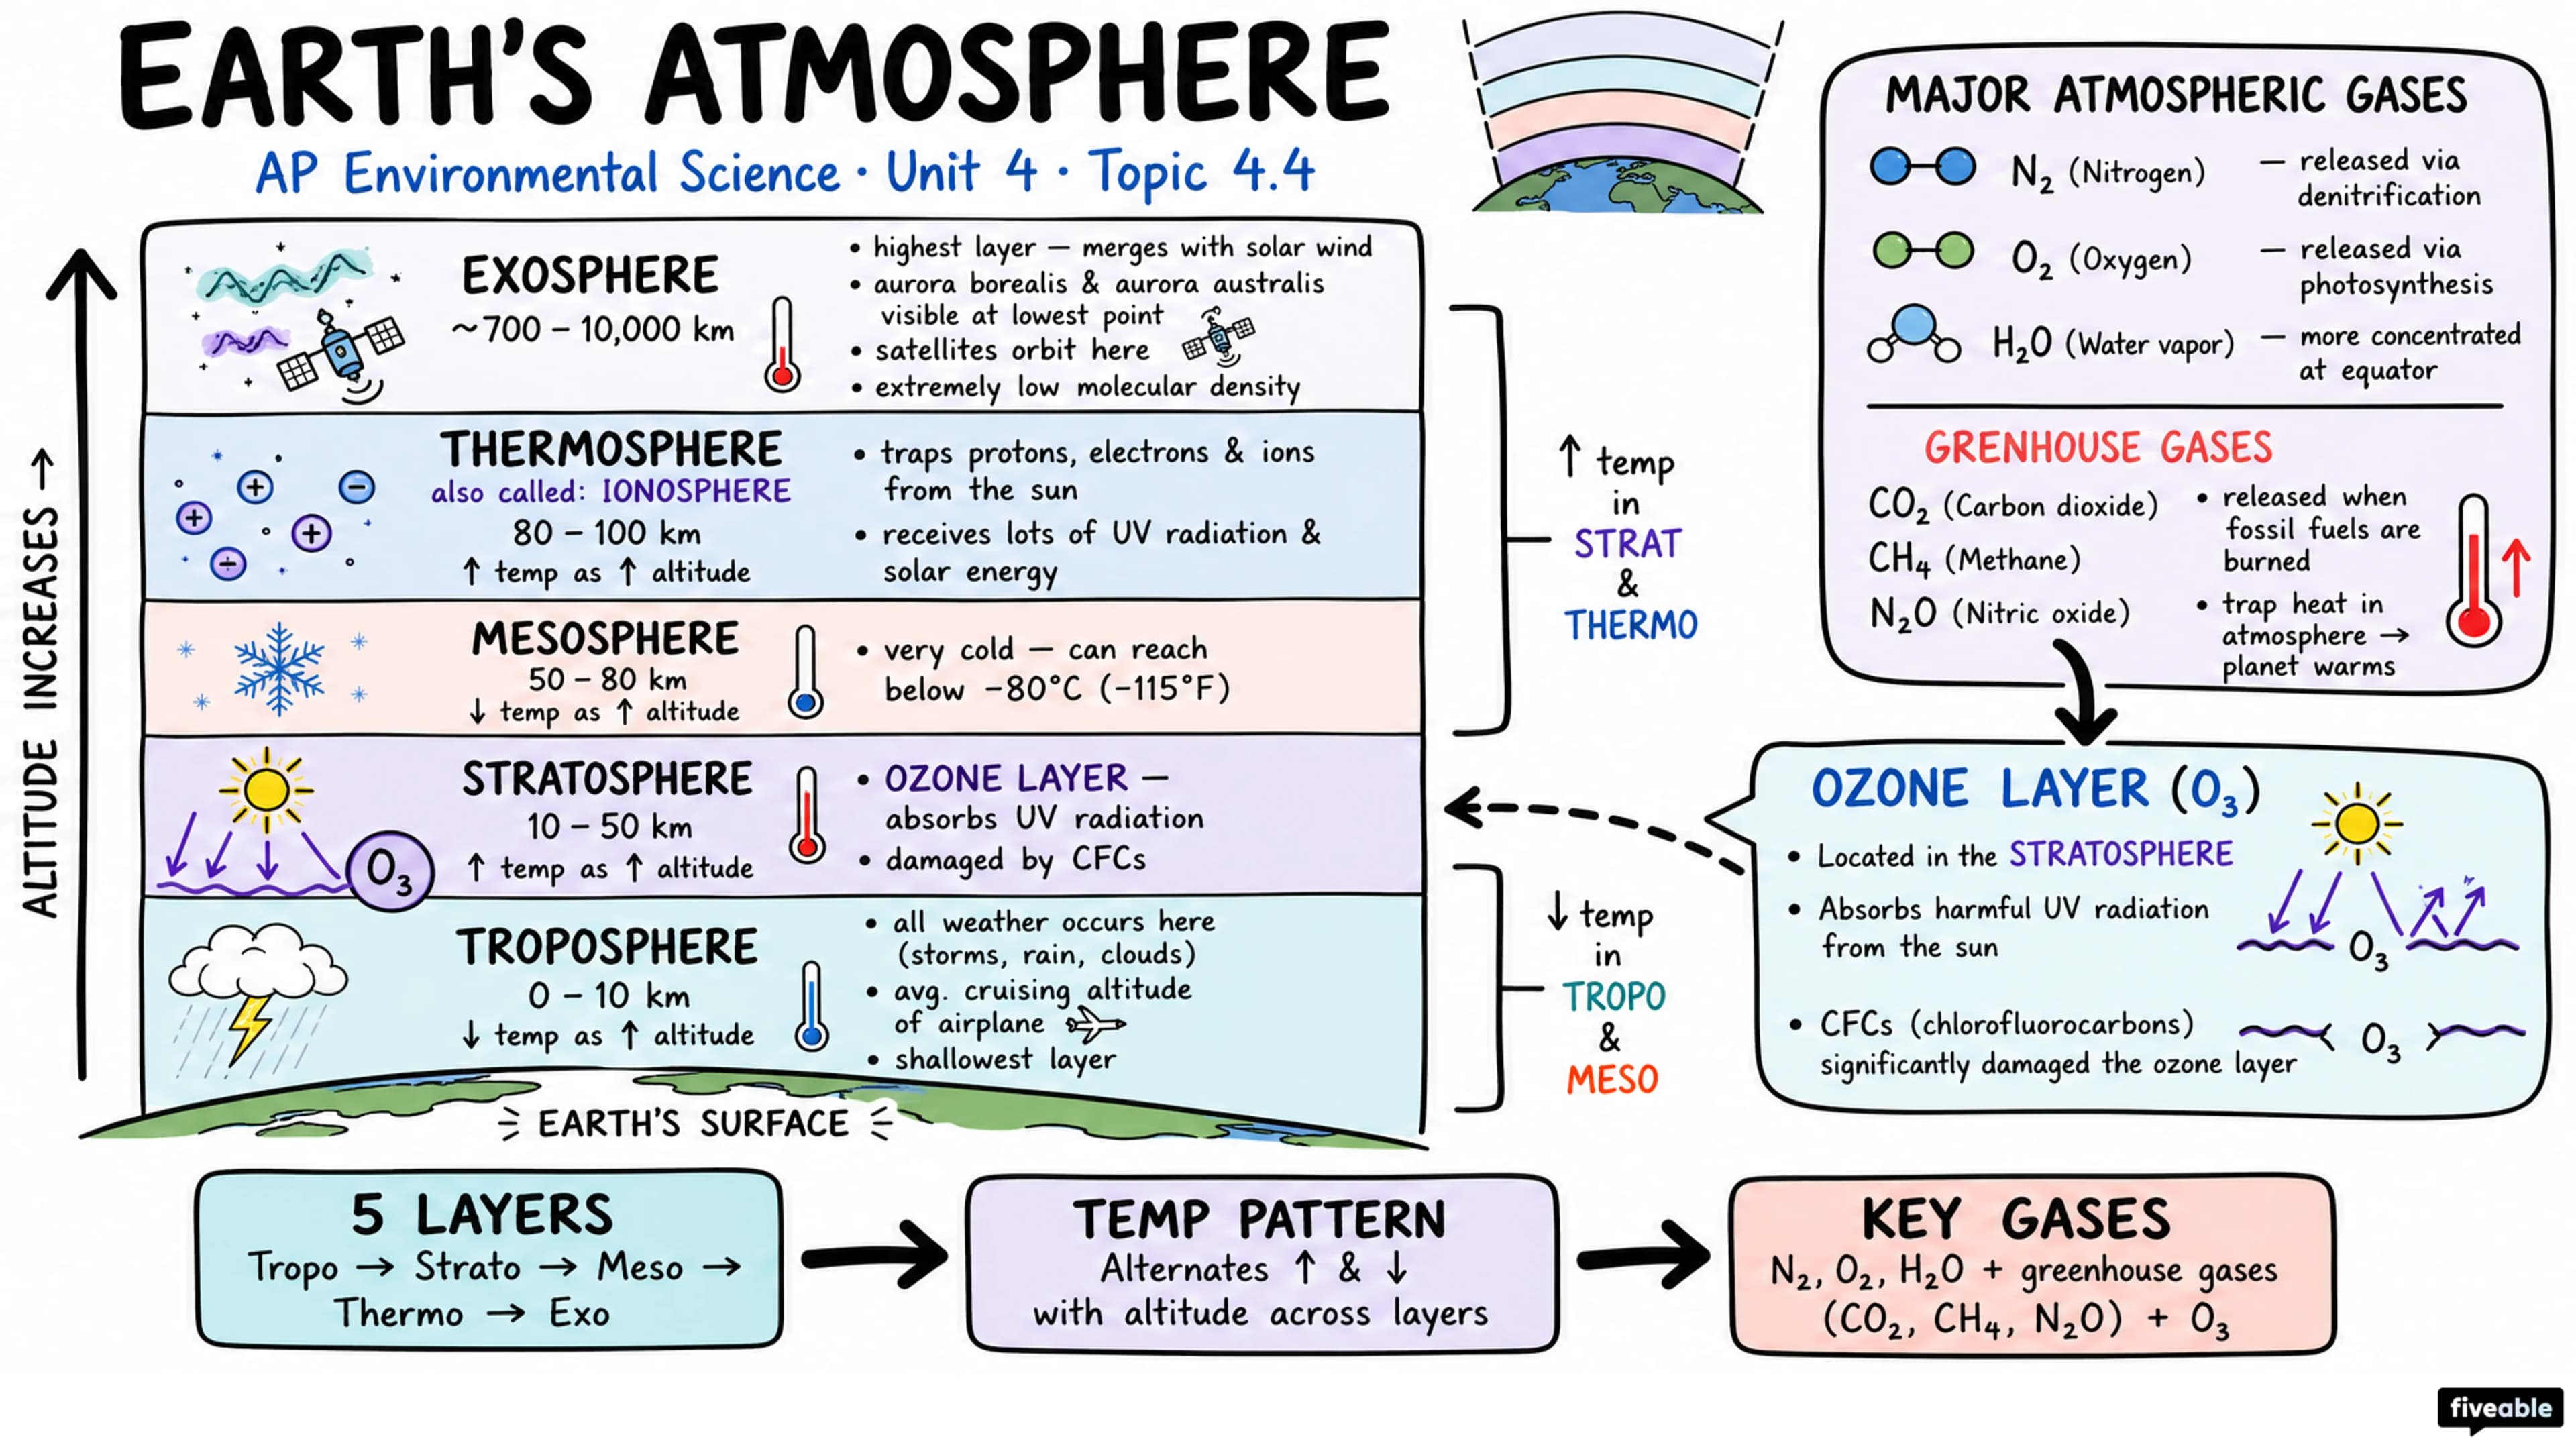 EARTH'S ATMOSPHERE
AP Environmental Science · Unit 4 · Topic 4.4
ALTITUDE INCREASES →
EXOSPHERE
~700 – 10,000 km
• highest layer — merges with solar wind
• aurora borealis & aurora australis
visible at lowest point
• satellites orbit here
• extremely low molecular density
THERMOSPHERE
also called: IONOSPHERE
80 – 100 km
↑ temp as ↑ altitude
• traps protons, electrons & ions
from the sun
• receives lots of UV radiation &
solar energy
MESOSPHERE
50 – 80 km
↓ temp as ↑ altitude
• very cold — can reach
below -80°C (-115°F)
STRATOSPHERE
10 – 50 km
↑ temp as ↑ altitude
O₃
• OZONE LAYER —
absorbs UV radiation
• damaged by CFCs
TROPOSPHERE
0 – 10 km
↓ temp as ↑ altitude
• all weather occurs here
(storms, rain, clouds)
• avg. cruising altitude
of airplane
• shallowest layer
EARTH'S SURFACE
↑ temp
in
STRAT
&
THERMO
↓ temp
in
TROPO
&
MESO
MAJOR ATMOSPHERIC GASES
N₂ (Nitrogen) — released via
denitrification
O₂ (Oxygen) — released via
photosynthesis
H₂O (Water vapor) — more concentrated
at equator
GRENHOUSE GASES
CO₂ (Carbon dioxide)
CH₄ (Methane)
N₂O (Nitric oxide)
• released when
fossil fuels are
burned
• trap heat in
atmosphere →
planet warms
OZONE LAYER (O₃)
• Located in the STRATOSPHERE
• Absorbs harmful UV radiation
from the sun
O₃
• CFCs (chlorofluorocarbons)
significantly damaged the ozone layer
O₃
5 LAYERS
Tropo → Strato → Meso →
Thermo → Exo
TEMP PATTERN
Alternates ↑ & ↓
with altitude across layers
KEY GASES
N₂, O₂, H₂O + greenhouse gases
(CO₂, CH₄, N₂O) + O₃
fiveable